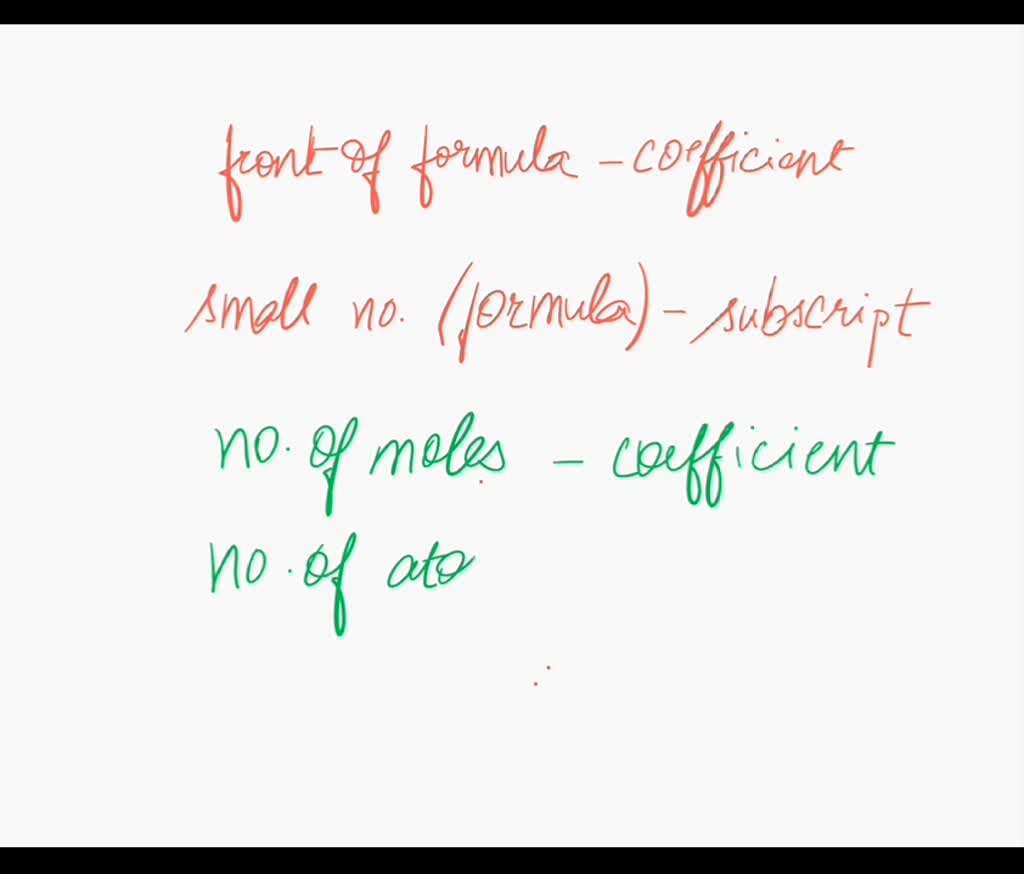 front of formula - coefficient
small no. (formula) - subscript
no. of moles - coefficient
no. of ato